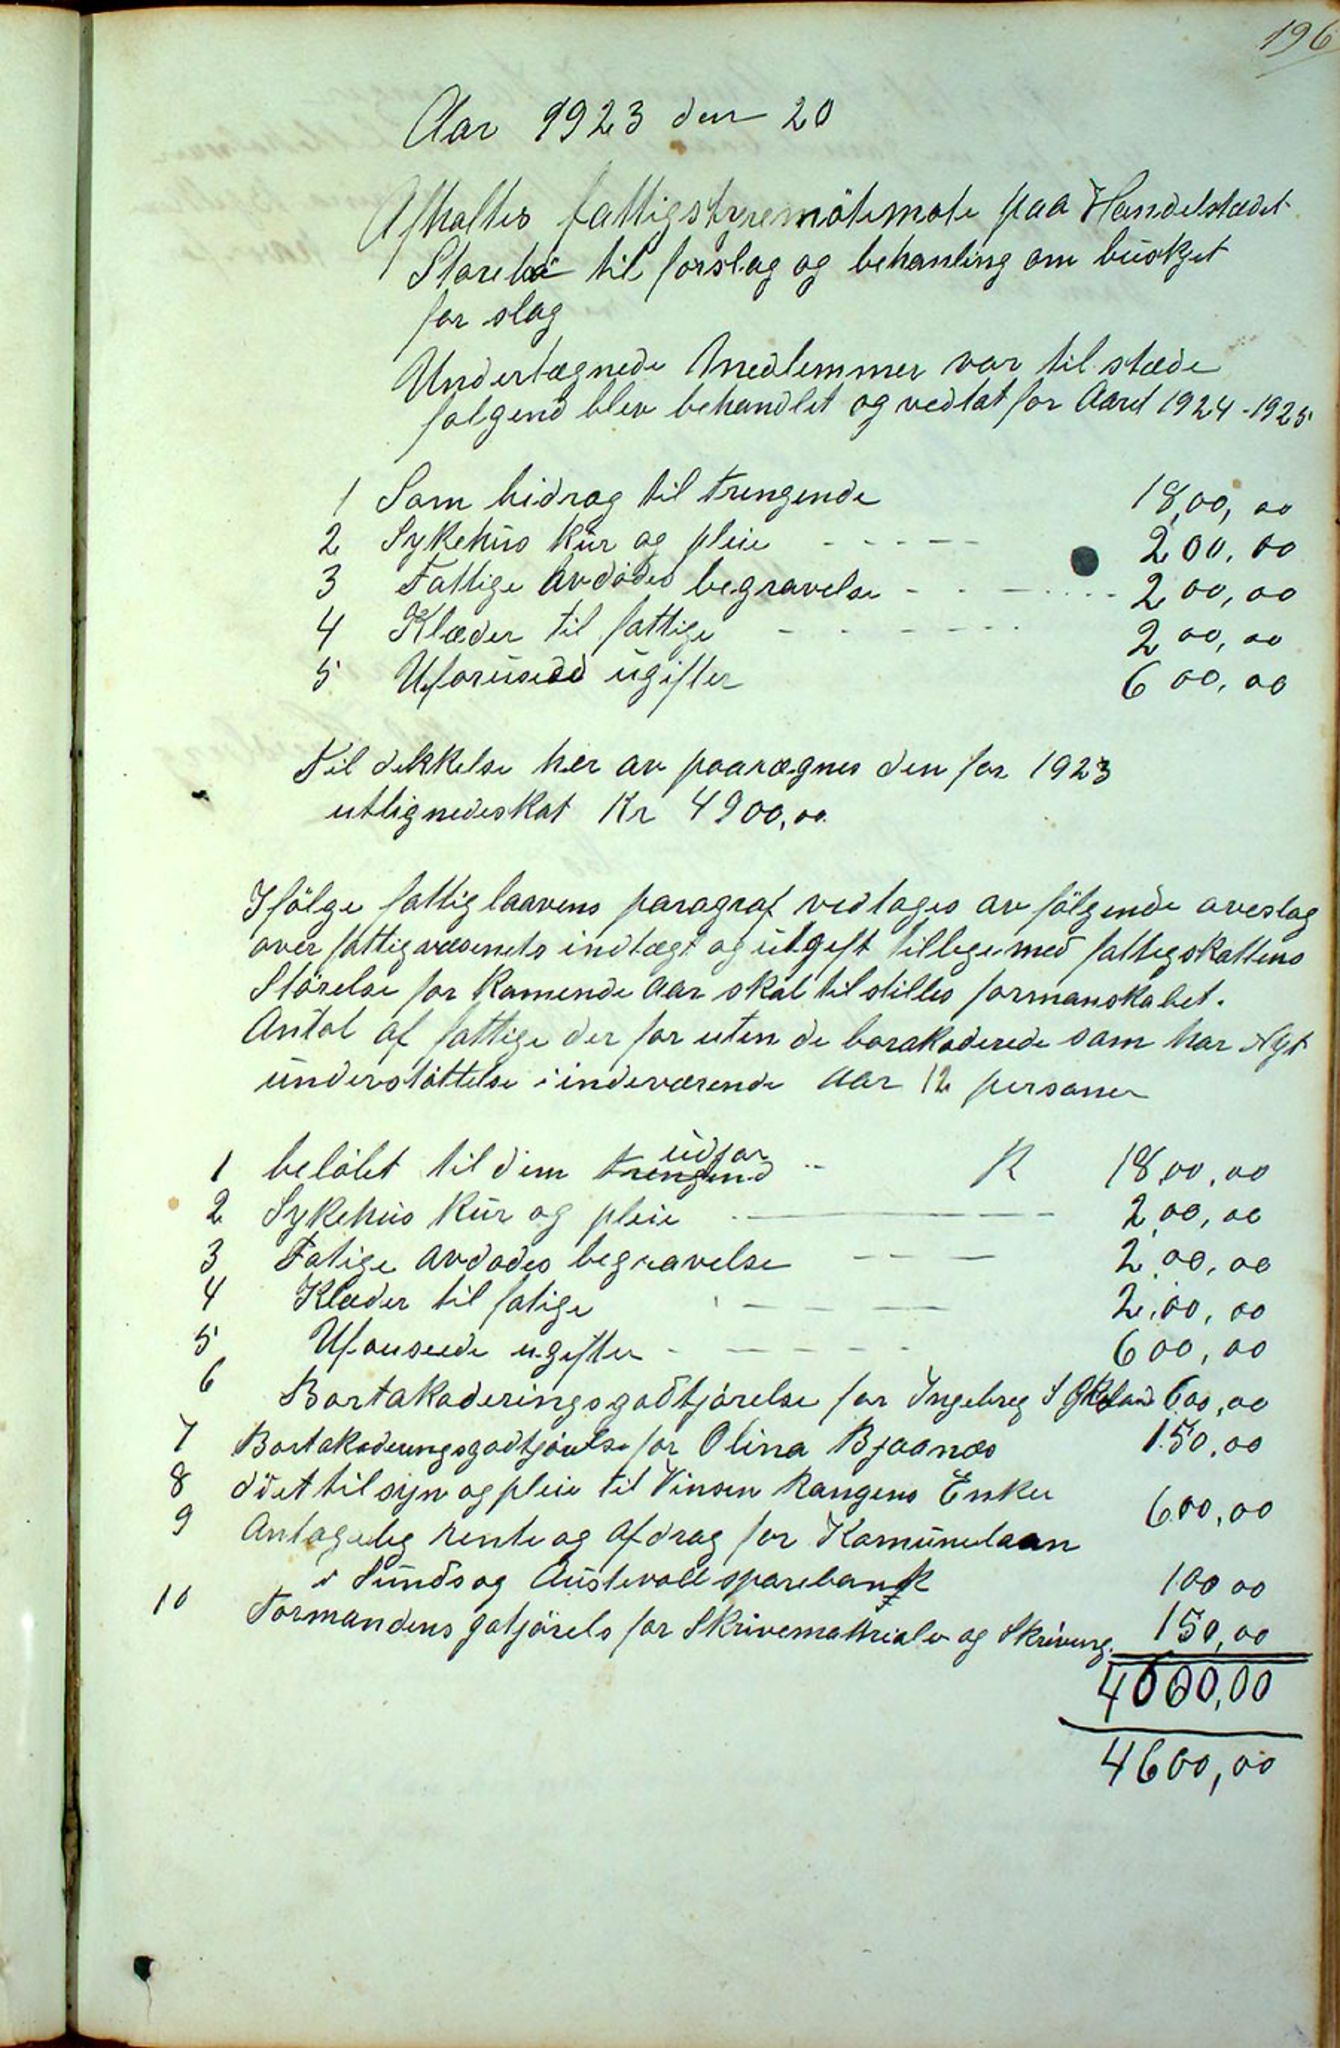 196
Aar 1923 den 20
Afholtes fattigstyremötemøte paa Handelstædet
Storebö til forslag og behanling om büdsket
for slag
Undertægnede Medlemmer var til stæde
følgend blev behandlet og vedtat for Aaret 1924-1925
1 Som bidrag til trengende 18,00,00
2 Sykehus kür og pleie - - - - - 200,00
3 Fattige avdødes begravelse - - - - - 200,00
4 Klæder til fattige - - - - - 200,00
5 Uforusedd ugifter 600,00
Til dekkelse her av paarægnes den for 1923
utlignedeskat Kr 4900,00
Ifölge fattiglaavens paragraf vedtoges av fölgende oveslag
over fattigvæsenets indtægt og utgift tillige med fattigskattens
Störelse for komende aar skal tilstilles formanskabet.
Antal af fattige der for uten de borakoderede som har nyt
understøttelse i indeværende aar 12 personer
1 beløbet til dem trengend udfor K 1800,00
2 Sykehus kür og pleie 200,00
3 Fatige avdødes begravelse - - - 200,00
4 Klæder til fatige - - - 200,00
5 Uforuseede ugifter - - - - - 600,00
6 Bortakoderingsgodtjørelse for Ingebreg S 600,00
7 Bortakoderingsgodtjørelse for Olina Bjaanæs 150,00
8 til syn og pleie til Vinsen Kangens Enke 600,00
9 Antagelig rente og Afdrag for Komünelaan
i Sunds og Austevoll sparebank 100 00
10 Formandens gotjörels for Skrivematrialer og Skriving 150,00
4600,00
4600,00